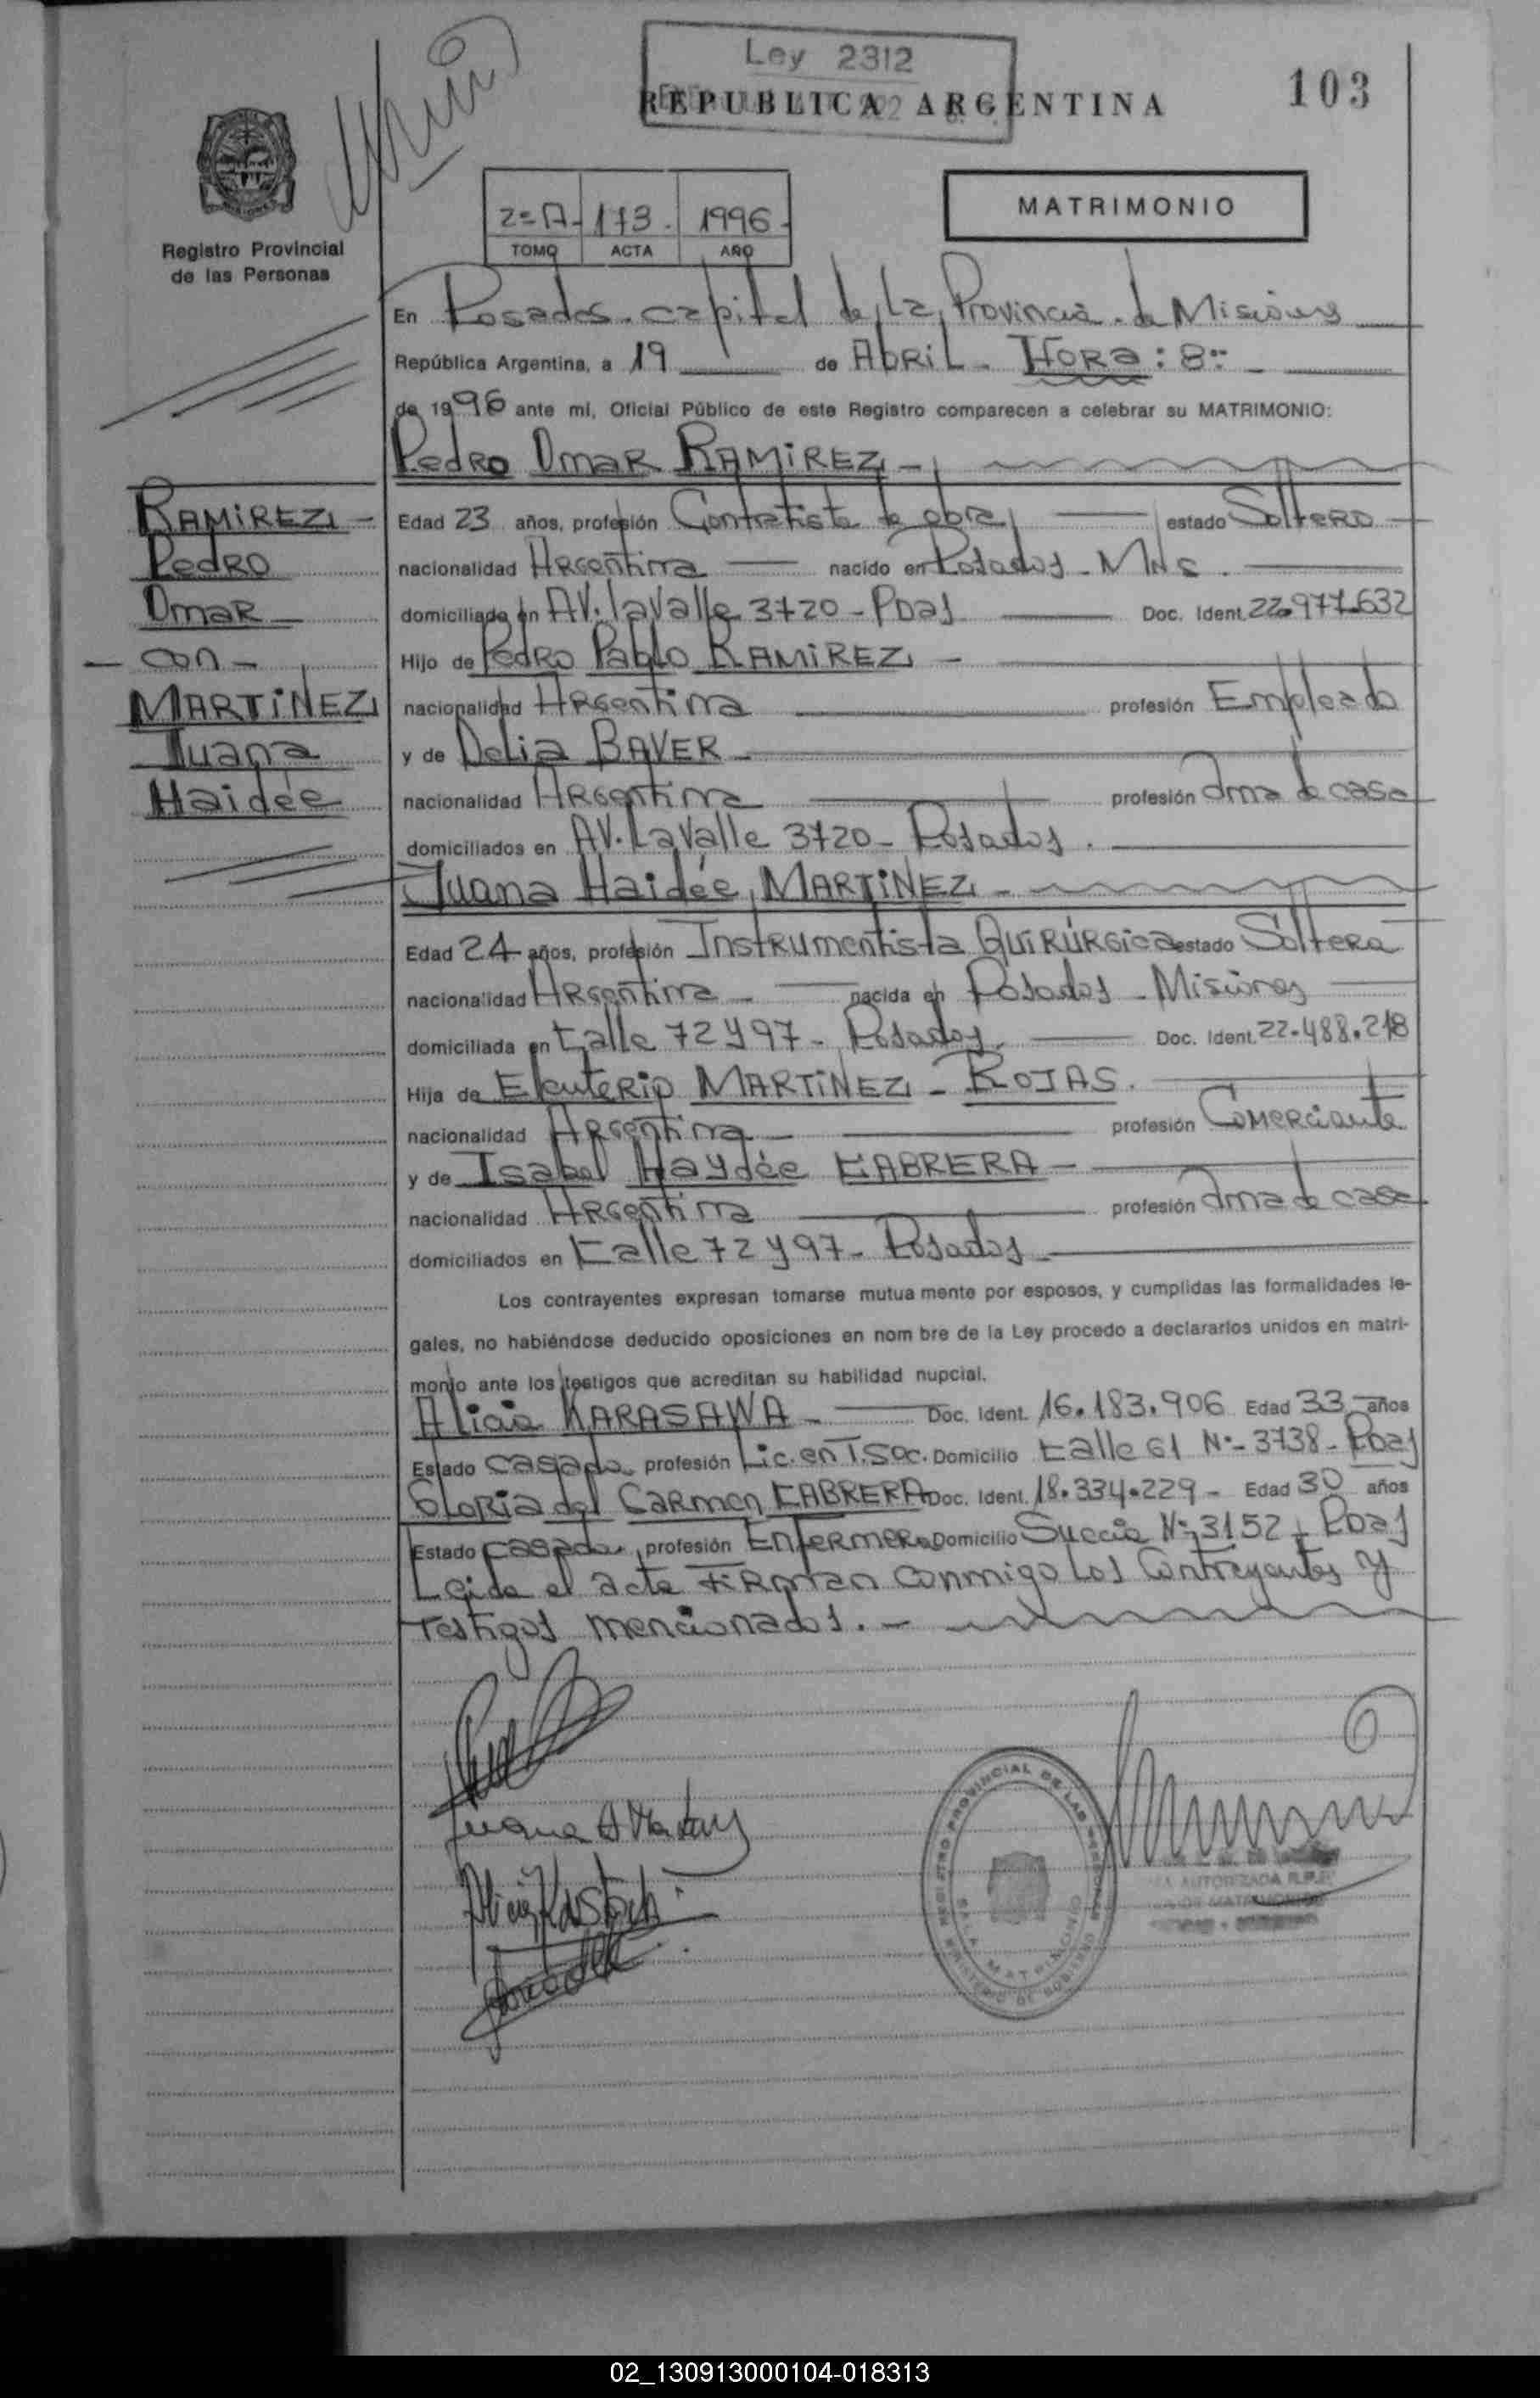 Ley 2312
REPUBLICA ARGENTINA
103
2=A- 173. 1996-
TOMO ACTA AÑO
MATRIMONIO
Registro Provincial
de las Personas
En Posadas. capital de la Provincia de Misiones
República Argentina, a 19 de Abril - HORA: 8:-
de 1996 ante mí, Oficial Público de este Registro comparecen a celebrar su MATRIMONIO:
Pedro Omar RAMIREZ -
RAMIREZ -
Pedro
Omar
- con -
MARTINEZ
Juana
Haidée
Edad 23 años, profesión Contratista de obra estado Soltero
nacionalidad Argentina nacido en Posadas - Mns.
domiciliado en AV. Lavalle 3720 - Pdas Doc. Ident. 22.977.632
Hijo de Pedro Pablo RAMIREZ -
nacionalidad Argentina profesión Empleado
y de Delia BAVER -
nacionalidad Argentina profesión Ama de casa
domiciliados en AV. Lavalle 3720 - Posadas.
Juana Haidée MARTINEZ -
Edad 24 años, profesión Instrumentista Quirúrgica estado Soltera
nacionalidad Argentina - nacida en Posadas - Misiones
domiciliada en Calle 72 y 97 - Posadas. Doc. Ident. 22.488.218
Hija de Eleuterio MARTINEZ - ROJAS.
nacionalidad Argentina - profesión Comerciante
y de Isabel Haydée CABRERA -
nacionalidad Argentina profesión Ama de casa
domiciliados en Calle 72 y 97 - Posadas
Los contrayentes expresan tomarse mutua mente por esposos, y cumplidas las formalidades le-
gales, no habiéndose deducido oposiciones en nom bre de la Ley procedo a declararlos unidos en matri-
monio ante los testigos que acreditan su habilidad nupcial.
Alicia KARASAWA - Doc. Ident. 16.183.906 Edad 33 años
Estado casada profesión Lic. en T. Soc. Domicilio Calle 61 Nº- 3738 - Pdas
Gloria del Carmen CABRERA Doc. Ident. 18.334.229 - Edad 30 años
Estado casada profesión Enfermera Domicilio Suecia Nº 3152 - Pdas
Leida el acta firman conmigo los Contrayentes y
Testigos mencionados. -
REGISTRO PROVINCIAL DE LAS PERSONAS
SALA MATRIMONIO
MINISTERIO DE GOBIERNO
AUTORIZADA R.P.P.
DE MATRIMONIOS
02_130913000104-018313